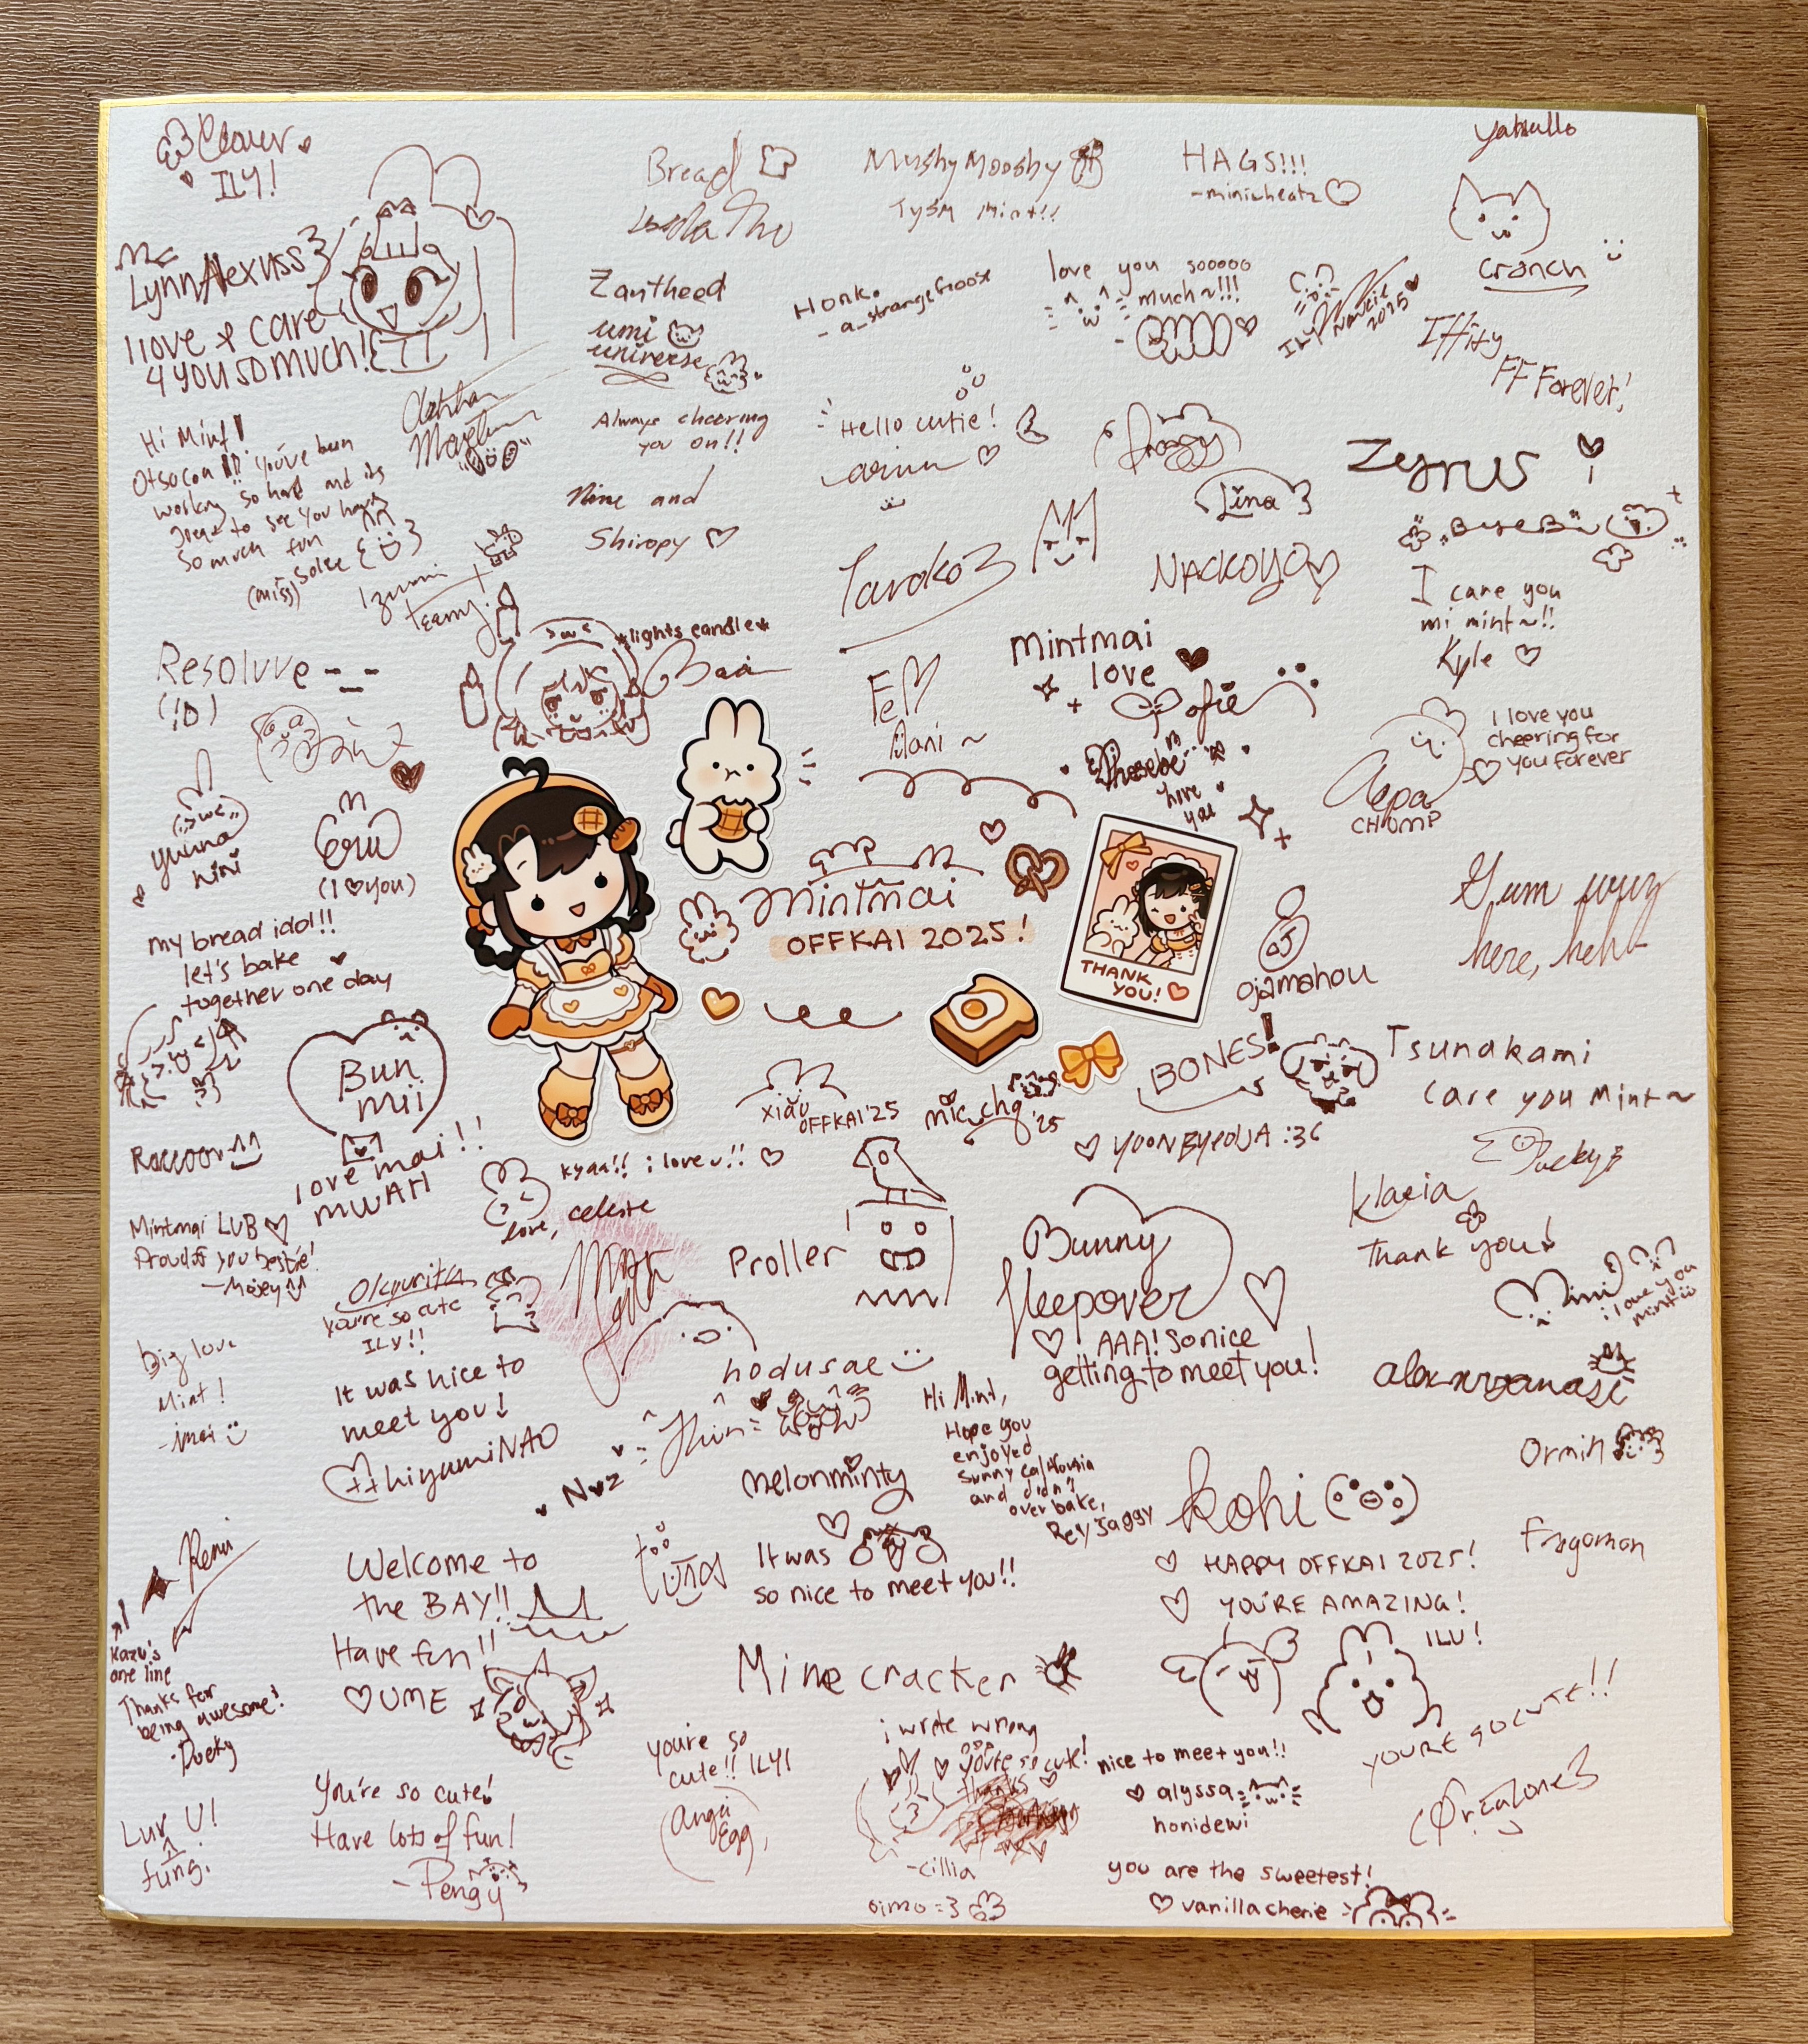 Clover
ILY!
LynnAlexuss
I love & care
4 you so much!
Bread
MushyMooshy
TYSM Mint!!
HAGS!!!
-miniwheatz
yabullo
cranch
Zantheed
umi
universe
Always cheering
you on!!
Honk.
- a_strangegoose
love you sooooo
much~!!!
ILY
2025
FF Forever!
Hi Mint!
Otsucon!! You've been
working so hard and it's
great to see you have
so much fun
(miss) solee
Hello cutie!
froggy
Lina
Zyrus
Nine and
Shiropy
Izumi
teamy!
Taroko3
NACKOYO
I care you
mi mint~!!
Kyle
Resoluve -_-
(!D)
*lights candle*
Bai
mintmai
love
Pofie
Fe
Mani ~
Phoebe
love
you
I love you
cheering for
you forever
Aepa
CHOMP
yuuna
nini
Eruu
(I ♡ you)
mintmai
OFFKAI 2025!
THANK
YOU!
ojamahou
Gum wuz
here, hehe
my bread idol!!!
let's bake
together one day
Bun
mii
love mai!!
MWAH
xiǎo
OFFKAI '25
mic_chg
'25
BONES!
YOONBYEOLIA :3C
Tsunakami
Care you Mint~
Ducky
Raccoon
kyaa!! i love u!!
love, celeste
Klaeia
Thank you!
Mintmai LUB
Proud of you bestie!
-Mojey
Olgurita
you're so cute
ILY!!
Proller
Bunny
Sleepover
AAA! So nice
getting to meet you!
Mimi
i love you
mint
big love
Mint!
-imai
It was nice to
meet you!
hiyumiNAO
hodusae
alexxryanase
Noz
melonminty
It was
so nice to meet you!!
Hi Mint,
Hope you
enjoyed
sunny california
and didn't
over bake,
Rey Jaggy
kohi
HAPPY OFFKAI 2025!
YOU'RE AMAZING!
ILU!
Ormin
Fregomon
Remi
Kazu's
one line
Thanks for
being awesome!
-Ducky
Welcome to
the BAY!!
Have fun!!
♡ UME
tuna
Minecracker
Luv U!
fung.
You're so cute!
Have lots of fun!
-Pengy
you're so
cute!! ILY!
Angii
Egg
i wrote wrong
you're so cute!
thanks
-cillia
oimo =3
nice to meet you!!
♡ alyssa
honidewi
YOU'RE SO CUTE!!
you are the sweetest!
♡ vanillacherie